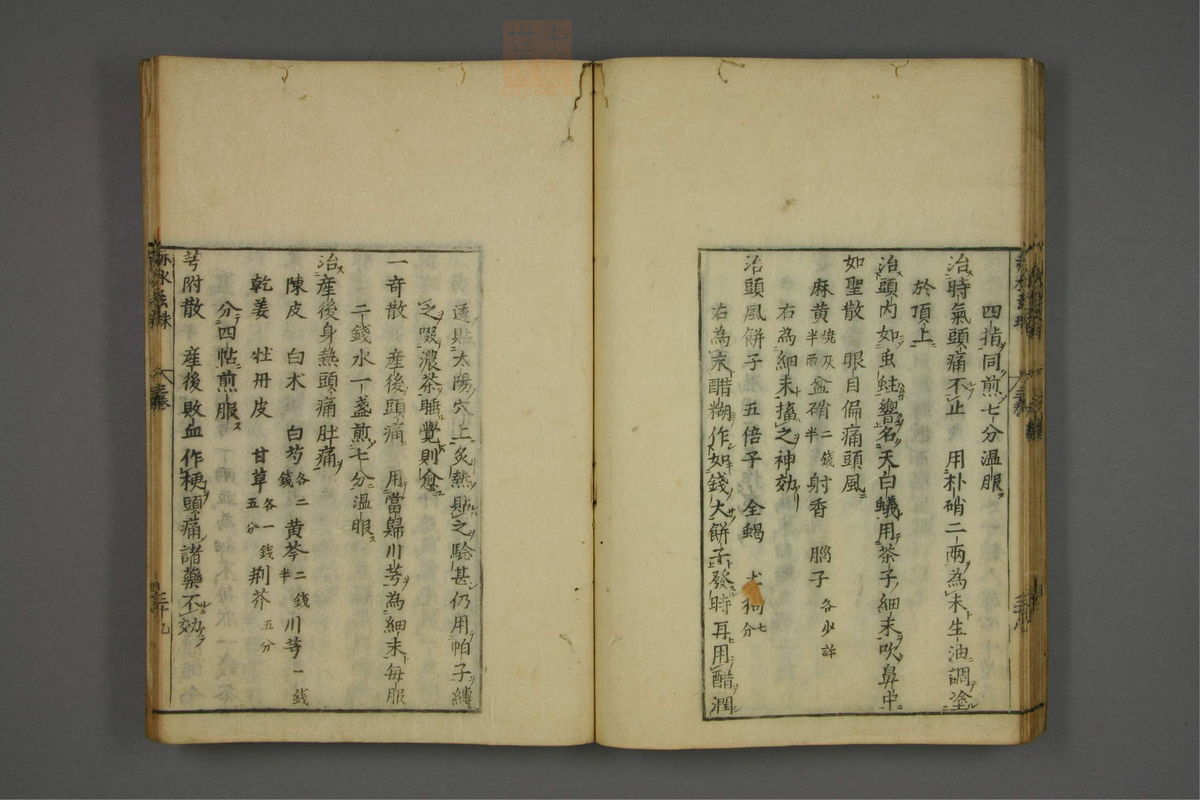 四指同煎七分温服
治時氣頭痛不止 用朴硝二兩為末生油調塗
於頂上
治頭内如虫蛀響名天白蟻用茶子細末吹鼻中
如聖散 眼目偏痛頭風
麻黄燒灰半兩 盆硝二錢半 射香 腦子各少許
右為細末搐之神効
治頭風餅子 五倍子 全蝎 土狗七分
右為末醋糊作如錢大餅子發時再用醋潤
透貼太陽穴上炙熱貼之驗甚仍用帕子縳
之啜濃茶睡覺則愈
一奇散 産後頭痛 用當歸川芎為細末每服
二錢水一盞煎七分温服
治産後身熱頭痛肚痛
陳皮 白术 白芍各二錢 黄芩二錢半 川芎一錢
乾姜 牡丹皮 甘草各一錢五分 荆芥五分
分四帖煎服
芎附散 産後敗血作梗頭痛諸藥不効
赤水玄珠 三卷 三十九